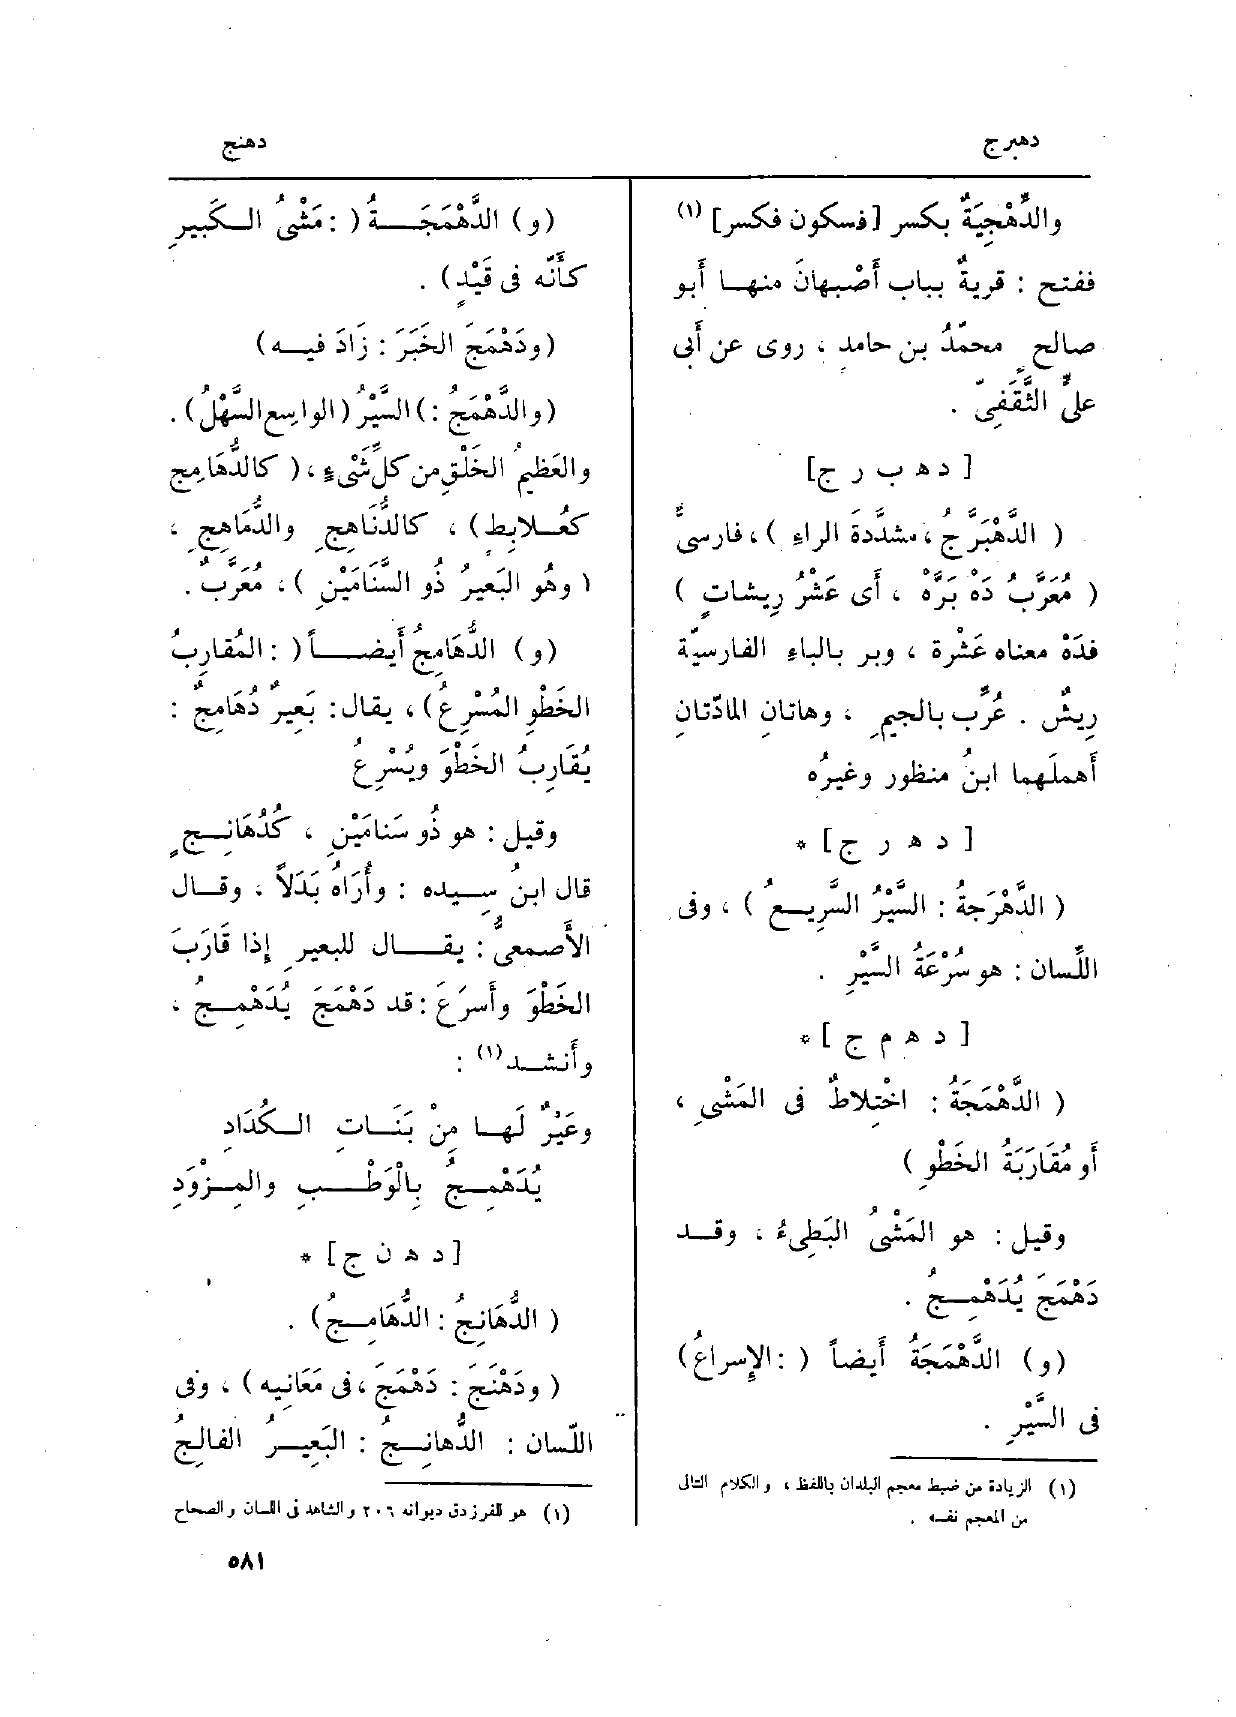 دهبرج
دهنج
والدِّهْجِيَةٌ بكسر [فسكون فكسر] (١)
ففتح : قريةٌ بباب أَصْبهانَ منهـا أَبو
صالحٍ محمّدُ بن حامدٍ ، روى عن أَبى
علىٍّ الثَّقَفِىّ .
[ د هـ ب ر ج]
( الدَّهْبَرَّجُ ، مشدَّدة الراءِ ) ، فارسىٌّ
( مُعَرَّبُ دَهْ بَرَّهْ ، أَى عَشْرُ رِيشَاتٍ )
فدَهْ معناه عَشْرة ، وبر بالباءِ الفارسيّة
رِيشٌ . عُرِّب بالجيمِ ، وهاتانِ المادّتانِ
أَهملَهما ابنُ منظور وغيرُه
[ د هـ ر ج ] *
( الدَّهْرَجَةُ : السَّيْرُ السَّرِيـعُ ) ، وفى
اللِّسان : هو سُرْعَةُ السَّيْرِ .
[ د هـ م ج ] *
( الدَّهْمَجَةُ : اخْتِلاطٌ فى المَشْىِ ،
أَو مُقَارَبَةُ الخَطْوِ )
وقيل : هو المَشْىُ البَطِىءُ ، وقـد
دَهْمَجَ يُدَهْمِـجُ .
(و) الدَّهْمَجَةُ أَيضاً ( : الإِسراعُ)
فى السَّيْرِ .
(١) الزيادة من ضبط معجم البلدان باللفظ ، والكلام التالى
من المعجم نفسه .
(و) الدَّهْمَجَـــةُ ( : مَشْىُ الـكَبيرِ
كأَنّه فى قَيْدٍ) .
(ودَهْمَجَ الخَبَرَ : زَادَ فيـه)
(والدَّهْمَجُ :) السَّيْرُ (الواسِع السَّهْلُ) .
والعَظِيمُ الخَلْقِ من كلِّ شَىْءٍ ، ( كالدُّهَامِج
كعُـلابِط) ، كالدُّنَاهِجِ والدُّمَاهِجِ ،
( وهُو البَعِيرُ ذُو السَّنَامَيْنِ ) ، مُعَرَّبٌ .
(و) الدُّهَامِجُ أَيضــاً ( : المُقارِبُ
الخَطْوِ المُسْرِعُ) ، يقال : بَعِيرٌ دُهَامِجٌ :
يُقَارِبُ الخَطْوَ ويُسْرِعُ
وقيل : هو ذُو سَنَامَيْنِ ، كَدُهَانِـجٍ
قال ابنُ سِـيده : وأُرَاهُ بَدَلاً ، وقـال
الأَصمعىُّ : يقـــال للبعيرِ إِذا قَارَبَ
الخَطْوَ وأَسرَعَ : قد دَهْمَجَ يُدَهْمِـجُ ،
وأَنشــد (١) :
وعَيْرٌ لَهـا مِنْ بَنَـاتِ الـكُدَادِ
يُدَهْمِـجُ بِالْوَطْــبِ والمِـزْوَدِ
[ د هـ ن ج ] *
( الدُّهَانِجُ : الدُّهَامِـجُ) .
( ودَهْنَجَ : دَهْمَجَ ، فى مَعَانِيه ) ، وفى
اللّسان : الدُّهانِـجُ : البَعِيـرُ الفَالِجُ
(١) هو للفرزدق ديوانه ٢٠٦ والشاهد فى اللسان والصحاح
٥٨١